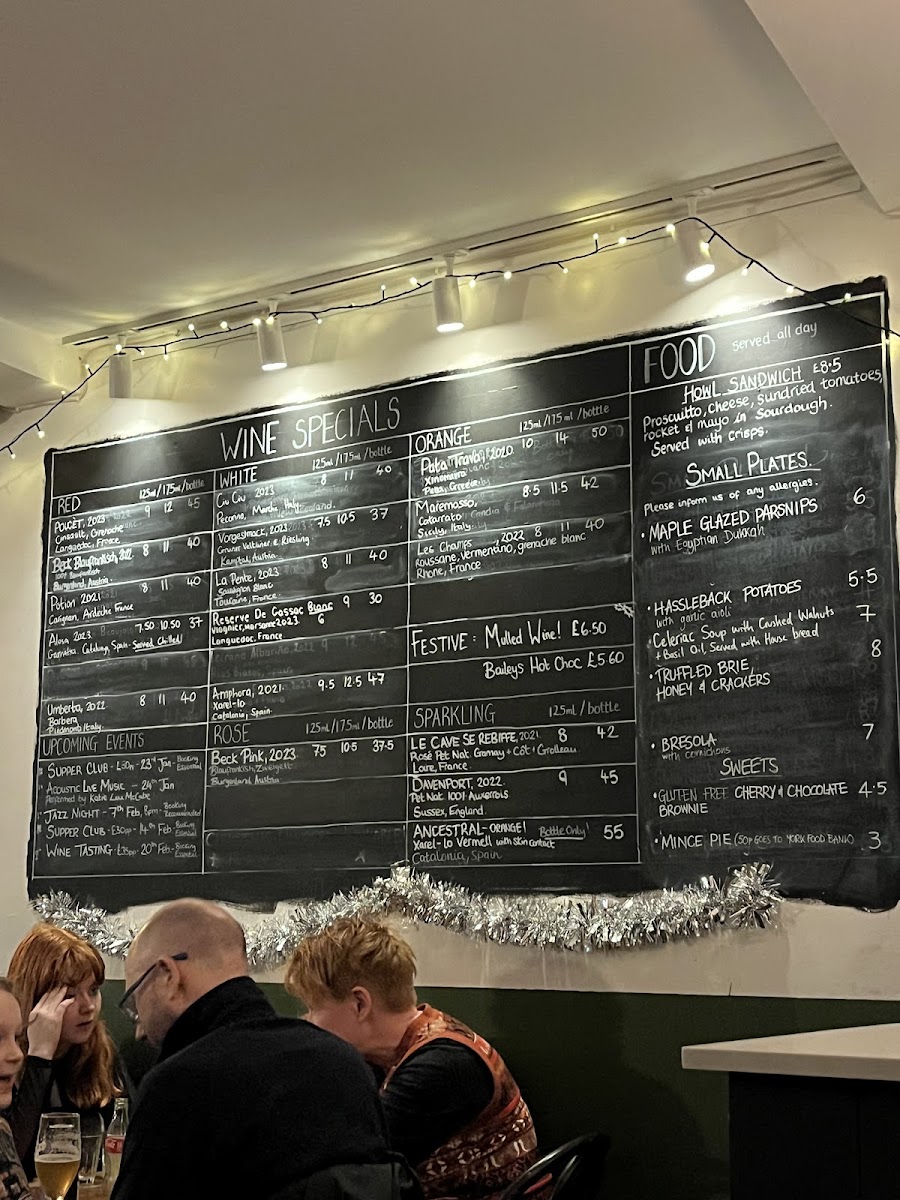 WINE SPECIALS
RED 125ml/175ml/bottle
POUCET, 2023 9 12 45
Cinsault, Grenache
Languedoc, France
Beck Blaufrankisch, 2022 8 11 40
100% Blaufrankisch
Burgenland, Austria.
Potion 2021 8 11 40
Carignan, Ardèche France
Alosa 2023 7.50 10.50 37
Garnatxa. Catalunya, Spain - Served Chilled
Umberto, 2022 8 11 40
Barbera
Piedmont, Italy
UPCOMING EVENTS
SUPPER CLUB - £30pp - 23rd Jan - Booking Essential
ACOUSTIC LIVE MUSIC - 24th Jan
Performed by Katie Lou McCabe
JAZZ NIGHT - 7th Feb, 8pm - Booking Recommended
SUPPER CLUB - £30pp - 14th Feb - Booking Essential
WINE TASTING - £35pp - 20th Feb - Booking Essential
WHITE 125ml/175ml/bottle
Ciu Ciu 2023 8 11 40
Pecorino, Marche, Italy
Vorgeschmack, 2023 7.5 10.5 37
Gruner Veltliner & Riesling
Kamptal, Austria
La Pente, 2023 8 11 40
Sauvignon Blanc
Touraine, France
Reserve De Gassac Blanc 9 30
Viognier, Marsanne 2023 6
Languedoc, France
Amphora, 2021 9.5 12.5 47
Xarel-lo
Catalonia, Spain
ROSE 125ml/175ml/bottle
Beck Pink, 2023 7.5 10.5 37.5
Blaufrankish, Zweigelt
Burgenland, Austria
ORANGE 125ml/175ml/bottle
Pata Trava, 2020. 10 14 50
Xinomavro
Pella, Greece
Maremosso, 8.5 11.5 42
Catarrato
Sicily, Italy
Les Champs, 2022 8 11 40
Roussane, Vermentino, grenache blanc
Rhone, France
FESTIVE: Mulled Wine! £6.50
Baileys Hot Choc £5.60
SPARKLING 125ml / bottle
LE CAVE SE REBIFFE, 2021. 8 42
Rosé Pet Nat. Gamay + Côt + Grolleau
Loire, France.
DAVENPORT, 2022. 9 45
Pet Nat. 100% Auxerrois
Sussex, England.
ANCESTRAL - ORANGE! Bottle Only! 55
Xarel-lo Vermell with Skin contact
Catalonia, Spain
FOOD served all day
HOWL SANDWICH £8.5
Proscuitto, cheese, sundried tomatoes,
rocket & mayo in Sourdough.
Served with crisps.
SMALL PLATES.
Please inform us of any allergies.
• MAPLE GLAZED PARSNIPS 6
with Egyptian Dukkah
• HASSLEBACK POTATOES 5.5
with garlic aioli
• Celeriac Soup with Crushed Walnuts 7
+ Basil Oil, Served with House bread
• TRUFFLED BRIE, 8
HONEY & CRACKERS
• BRESOLA 7
with cornichons
SWEETS
• GLUTEN FREE CHERRY & CHOCOLATE 4.5
BROWNIE
• MINCE PIE (50p GOES TO YORK FOOD BANK) 3